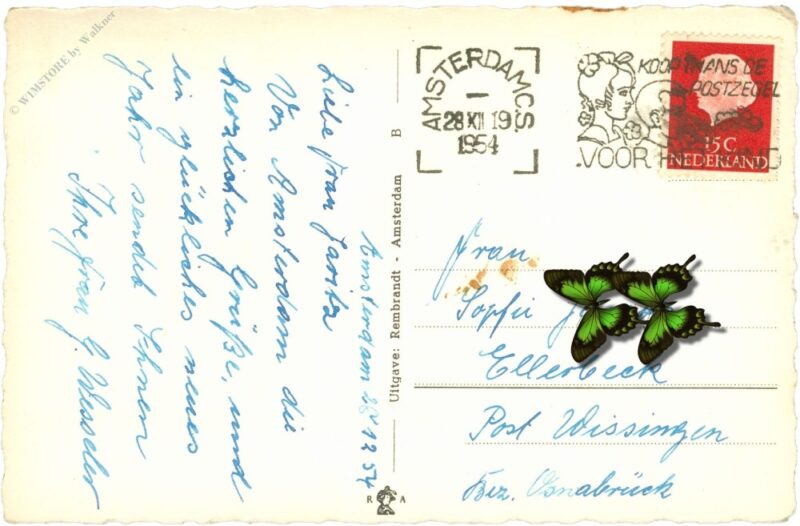 © WIMSTORE by Walkner
Amsterdam 28 12 54
Liebe Frau
Von Amsterdam die
herzlichen Grüße, und
ein glückliches neues
Jahr sendet Ihnen
Ihre Frau G.
Uitgave: Rembrandt - Amsterdam B
R A
AMSTERDAM C.S.
28 XII 19
1954
KOOP THANS DE
POSTZEGEL
VOOR
15 C
NEDERLAND
Frau
Sopfie
Ellerbeck
Post Wissingen
Bez. Osnabrück